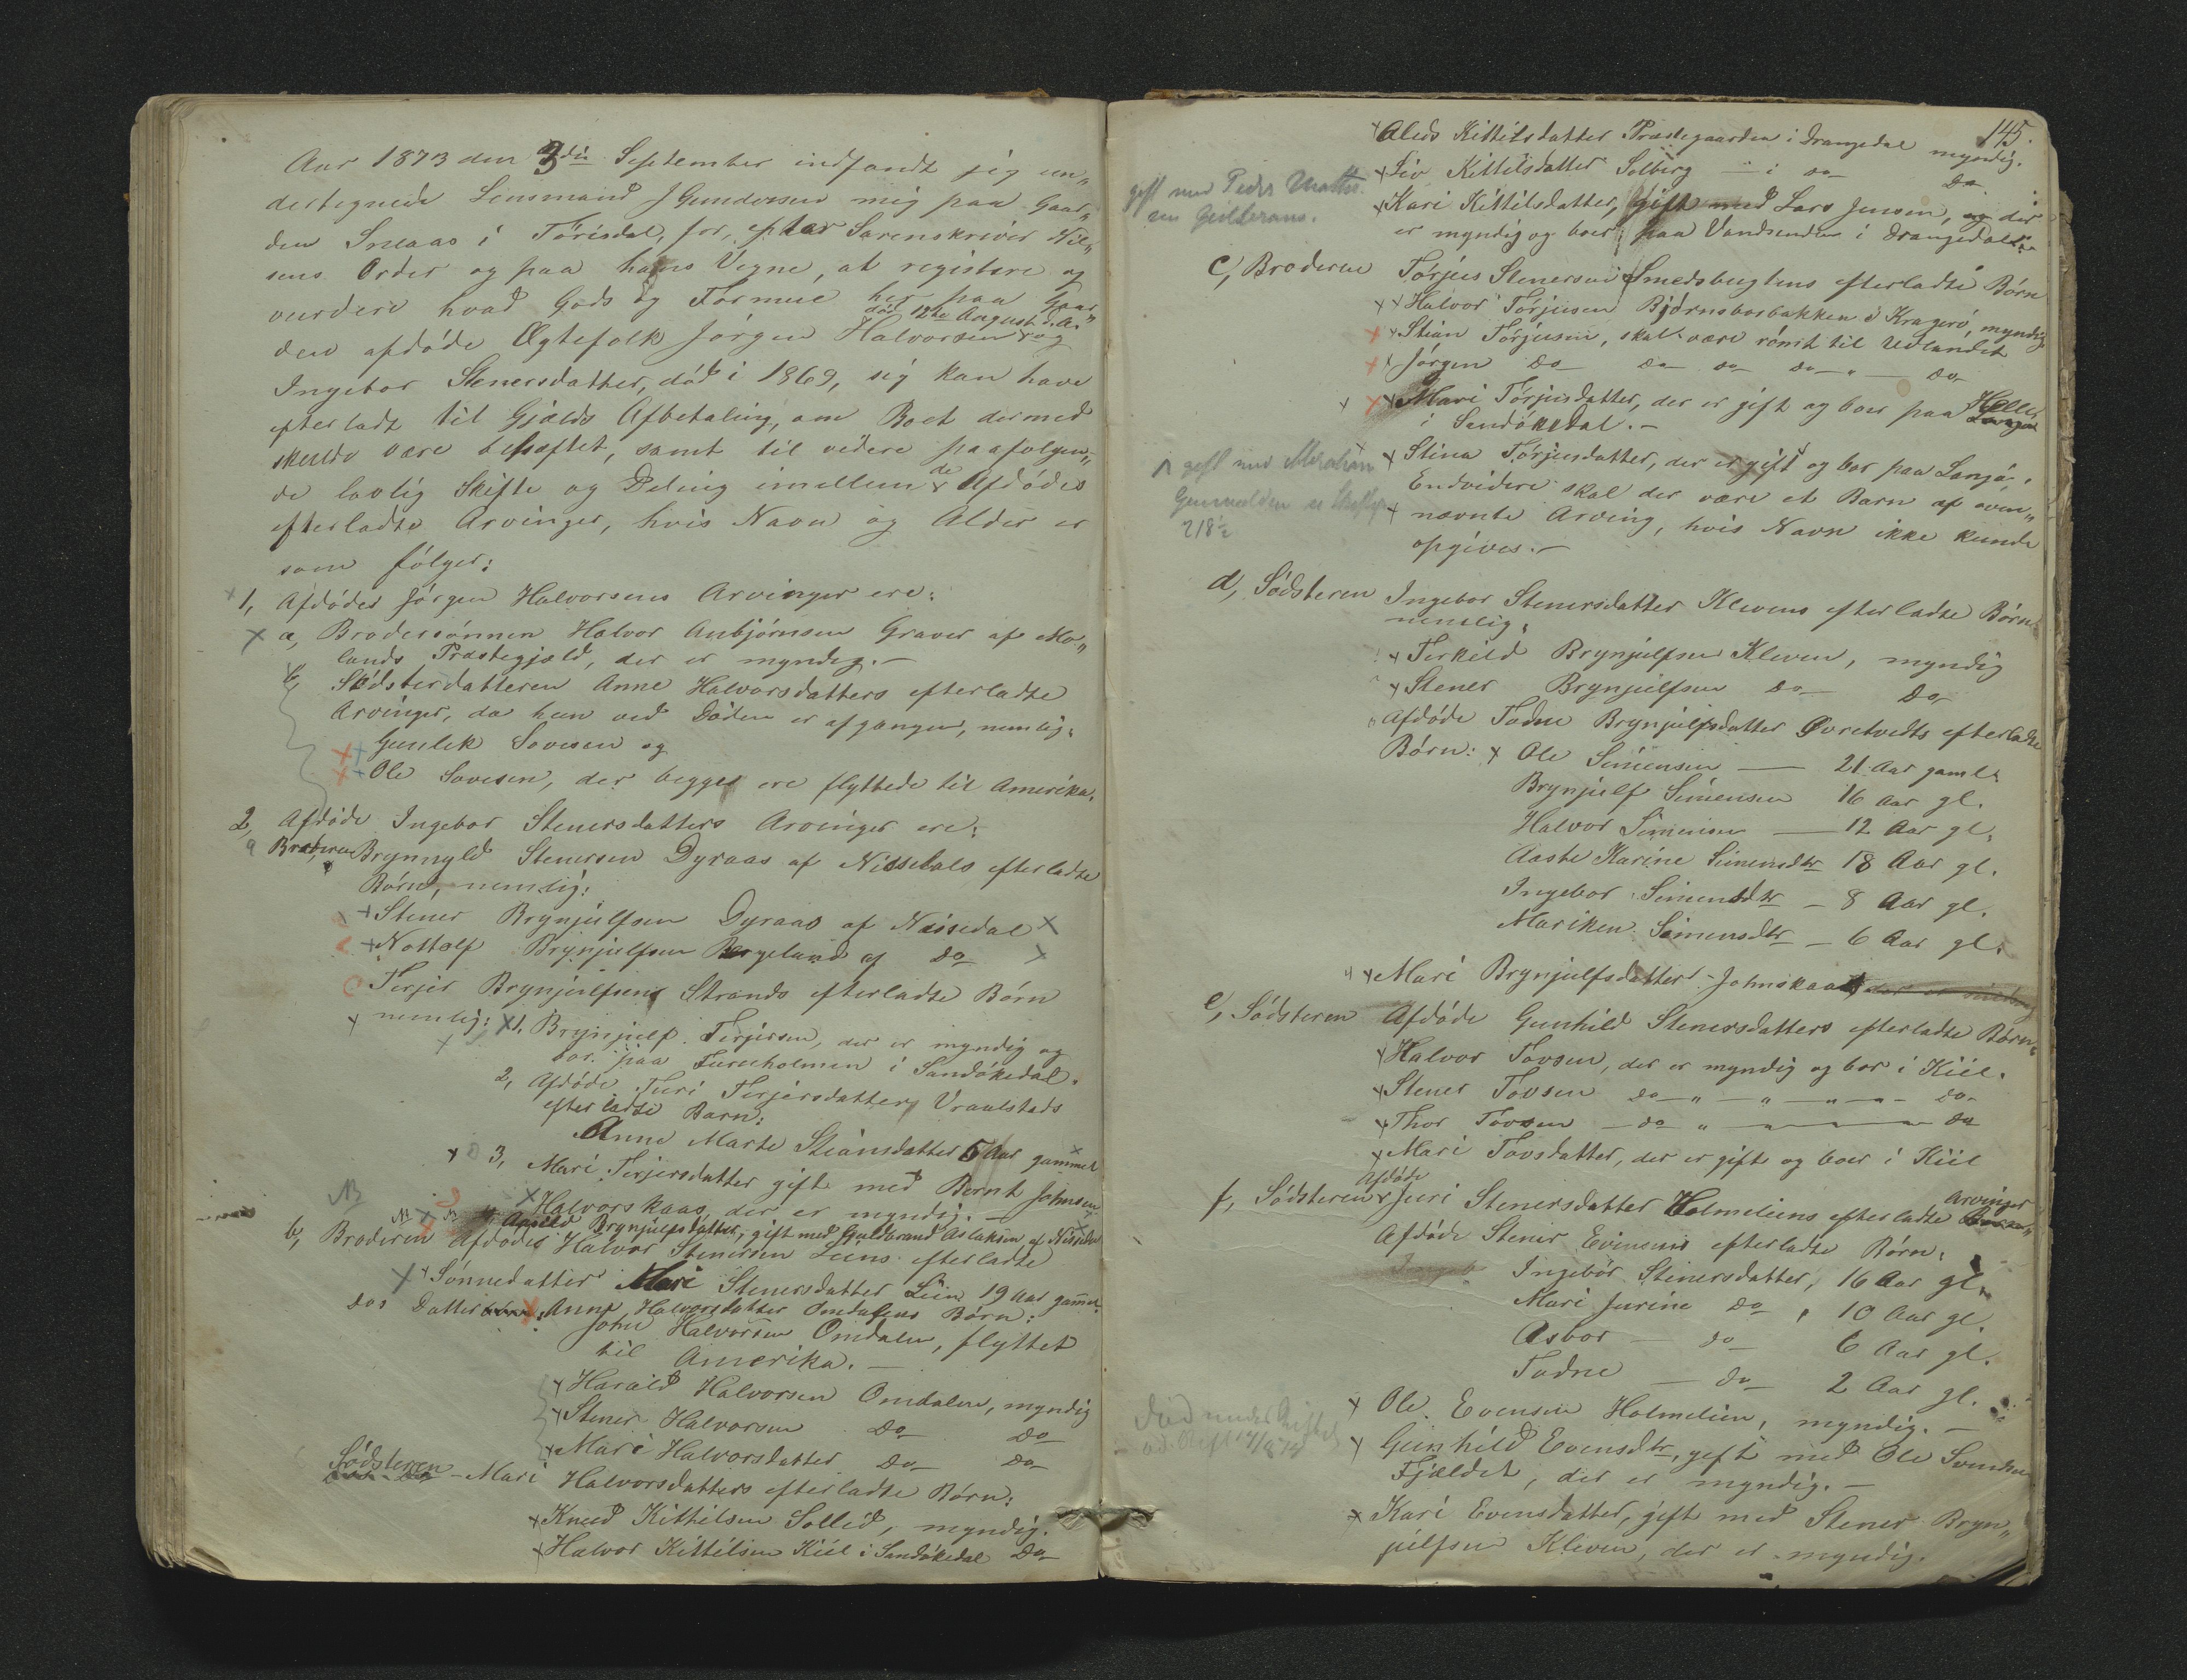 Aar 1873 den 3die September indfandt sig un„
dertegnede Lensmand J Gundersen mig paa Gaar„
den Snaas i Tørisdal, for, efter Sorenskriver Nil„
sens Order og paa hans Vegne, at registere og
vurdere hvad Gods og Formue her paa Gaar„
den afdøde Ægtefolk Jørgen Halvorsen død 12te August d. A. og
Ingebor Stenersdatter, død i 1869, sig kan have
efterladt til Gjælds Afbetaling, om Boet dermed
skulde være behæftet, samt til videre paafølgen„
de lovlig Skifte og Deling imellem de Afdødes
efterladte Arvinger, hvis Navn og Alder er
som følger:
1, Afdødes Jørgen Halvorsens Arvinger ere:
a, Brodersønnen Halvor Anbjørnsen Graver af Mo„
lands Præstegjæld, der er myndig.—
b, Sødsterdatteren Anne Halvorsdatters efterladte
Arvinger, da hun ved Døden er afgangen, nemlig:
Gunlek Sovesen og
Ole Sovesen, der begges ere flyttede til Amerika.
2, Afdøde Ingebor Stenersdatters Arvinger ere:
a Broderen Brynnyld Stenersen Dyraas af Nissedals efterladte
Børn, nemlig:
Stener Brynjulfsen Dyraas af Nissedal
Nottolf Brynjulfsen Bergeland af do
Terjer Brynjulfsens Strands efterladte Børn
nemlig: 1. Brynjulf Terjersen, der er myndig og
bor paa Furuholmen i Sandøkedal.
2, Afdøde Turi Terjersdatter Vraalstads
efterladte Barn:
Anne Marte Stiansdatter 5 Aar gammel
3, Mari Terjersdatter gift med Bernt Johnsen
Halvorskaas, der er myndig.—
Aasild Brynjulfsdatter, gift med Guldbrand Aslaksen af Nissedal
b, Broderen Afdødes Halvor Stenersen Liens efterladte
Sønnedatter Mari Stenersdatter Lien 19 Aar gammel.
dos Datter Anne Halvorsdatter Omdalens Børn:
John Halvorsen Omdalen, flyttet
til Amerika.—
Harald Halvorsen Omdalen, myndig
Stener Halvorsen do do
Mari Halvorsdatter do do
Sødsteren Mari Halvorsdatters efterladte Børn:
Knud Kittilsen Sollid, myndig.
Halvor Kittilsen Kiil i Sandøkedal do
145.
Aleds Kittilsdatter Præstegaarden i Drangedal myndig.
Liv Kittilsdatter Solberg — i do do
gift med Peder
Kari Kittilsdatter, gift med Lars Jensen, og der
er myndig og boer paa Vandsenden i Drangedal.
c, Broderen Tørjus Stenersen Smedsbugtens efterladte Børn
Halvor Tørjusen Bjørnsbosbakken i Kragerø, myndig
Stian Tørjusen, skal være rømt til Udlandet
Jørgen do do do do „ do
Mari Tørjusdatter, der er gift og boer paa Helle
i Sandøkedal.—
gift med Abraham
Stina Tørjusdatter, der er gift og bor paa Langø.
Endvidere skal der være et Barn af oven„
nævnte Arving, hvis Navn ikke kunde
opgives.—
d, Sødsteren Ingebor Stenersdatter Klevens efterladte Børn
nemlig:
Terkild Brynjulfsen Kleven, myndig
Stener Brynjulfsen do do
Afdøde Tadne Brynjulfsdatter Øvretvedts efterladte
Børn: Ole Simensen — 21 Aar gamle
Brynjulf Simensen 16 Aar gl.
Halvor Simensen — 12 Aar gl.
Aaste Karine Simensdtr 18 Aar gl.
Ingebor Simensdtr — 8 Aar gl.
Mariken Simensdtr — 6 Aar gl.
Mari Brynjulfsdatter Johnskaas,
e, Sødsteren Afdøde Gunhild Stenersdatters efterladte Børn:
Halvor Tovsen, der er myndig og bor i Kiil.
Stener Tovsen do „ „ „ do
Thor Tovsen — do „ do
Mari Tovsdatter, der er gift og boer i Kiil
f, Sødsteren Afdøde Juri Stenersdatter Holmeliens efterladte Arvinger
Afdøde Stener Evensens efterladte Børn:
Ingebør Stenersdatter, 16 Aar gl.
Mari Jurine do „ 10 Aar gl.
Asbor — do 6 Aar gl.
Tadne — do 2 Aar gl.
Ole Evensen Holmelien, myndig.—
Gunhild Evensdtr, gift med Ole Svendsen
Fjældet, der er myndig.—
Kari Evensdatter, gift med Stener Bryn„
julfsen Kleven, der er myndig.